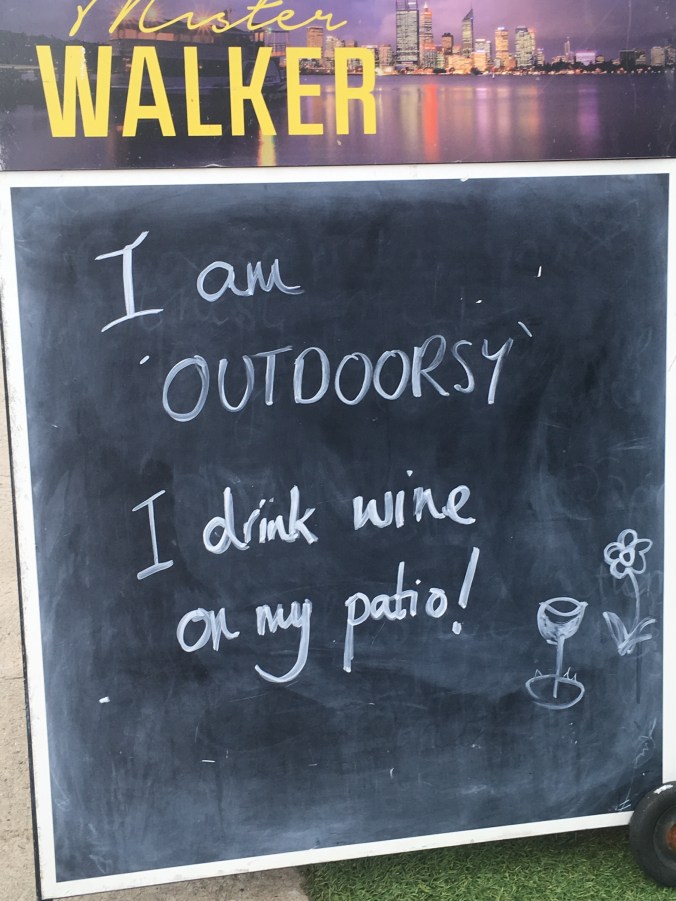 Mister
WALKER
I am
'OUTDOORSY'
I drink wine
on my patio!